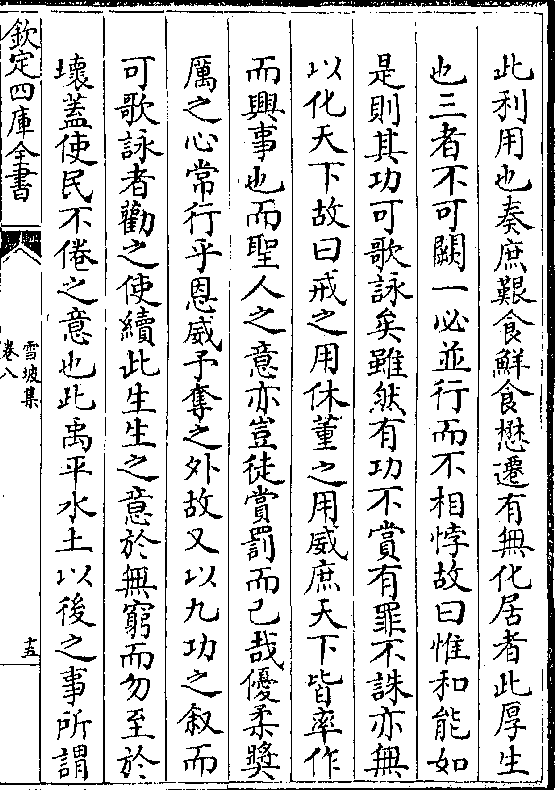 此利用也奏庶艱食鮮食懋遷有無化居者此厚生
也三者不可闕一必並行而不相悖故曰惟和能如
是則其功可歌詠矣雖然有功不賞有罪不誅亦無
以化天下故曰戒之用休董之用威庶天下皆率作
而興事也而聖人之意亦豈徒賞罰而已哉優柔獎
厲之心常行乎恩威予奪之外故又以九功之叙而
可歌詠者勸之使續此生生之意於無窮而勿至於
壞蓋使民不倦之意也此禹平水土以後之事所謂
欽定四庫全書
雪坡集
卷八
十五